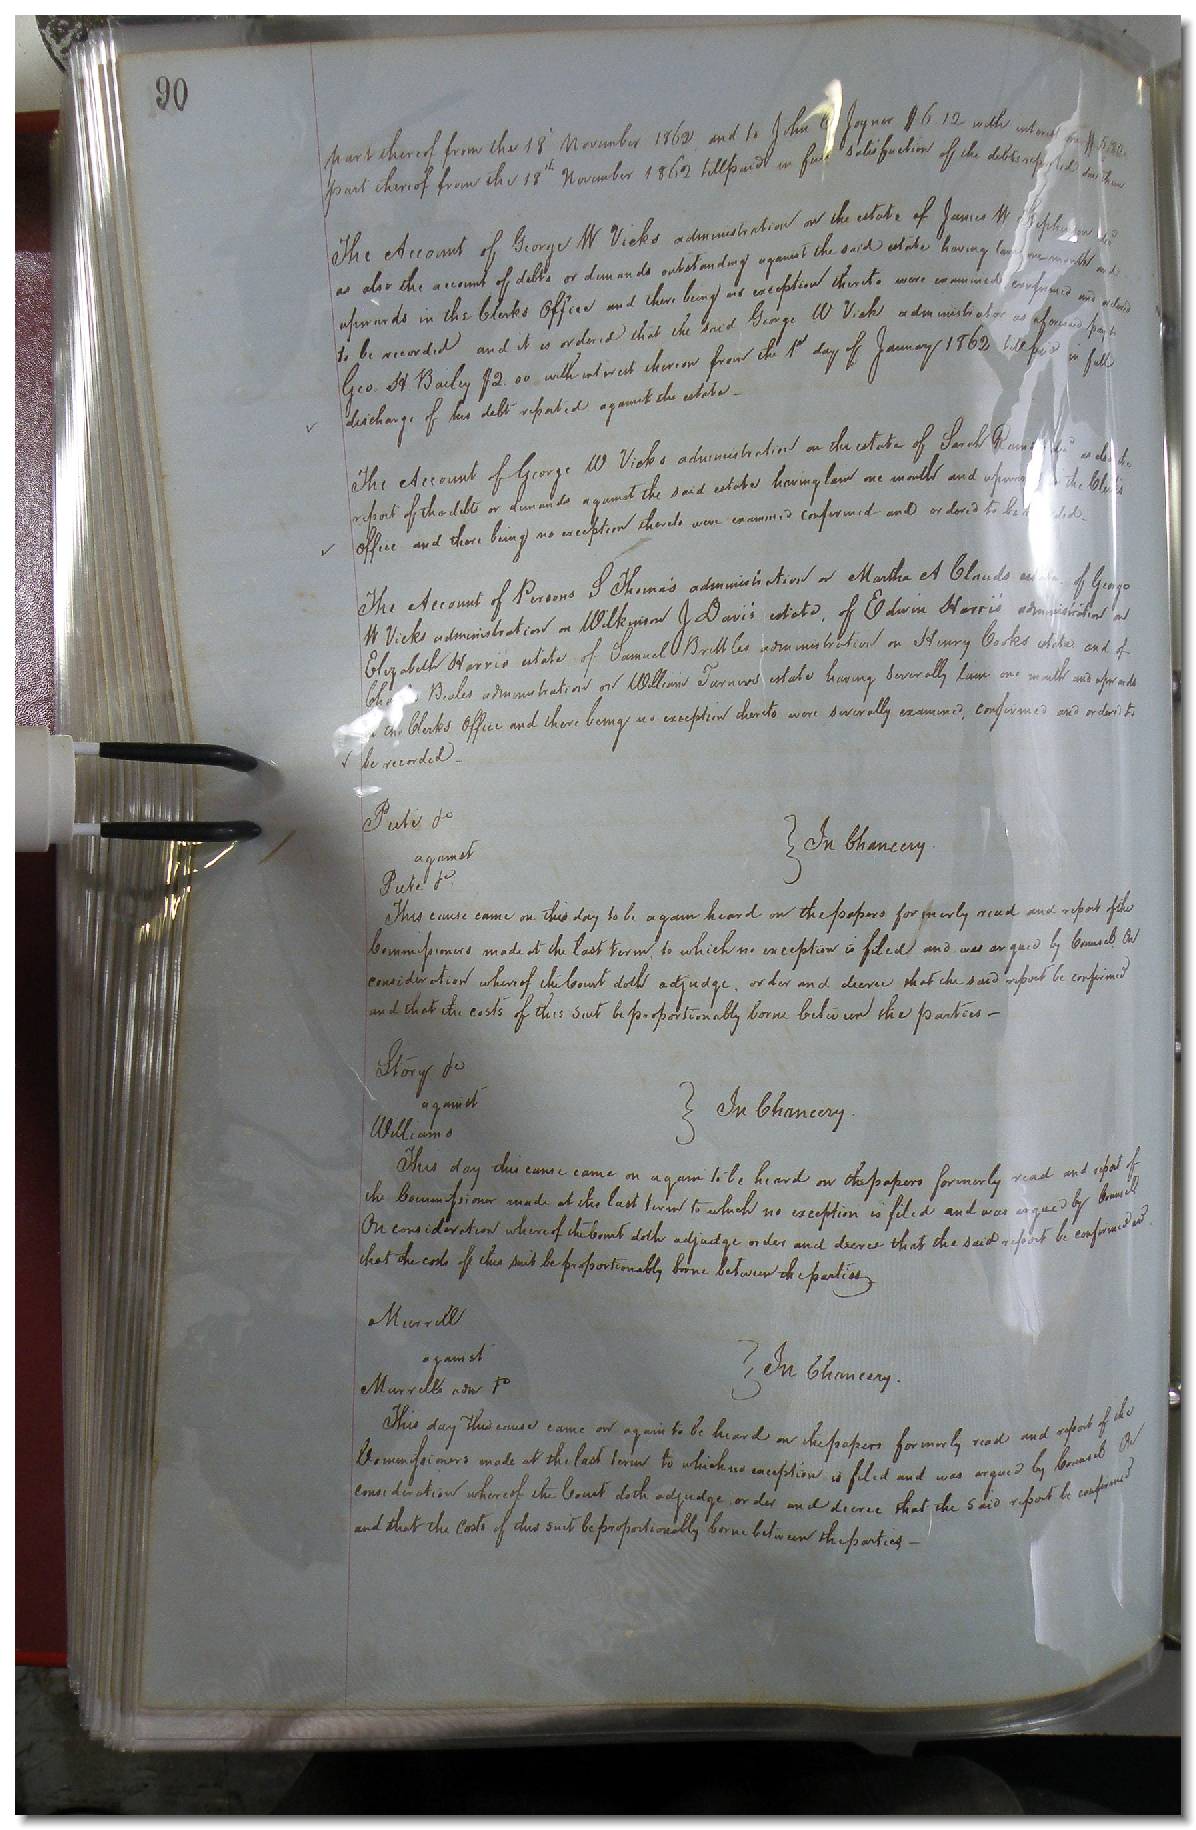 90
part thereof from the 18th November 1862 and to John Joyner $6.12 with interest on $5.
part thereof from the 18th November 1862 till paid in full satisfaction of the debts reported due them
The Account of George W Vicks administration on the estate of James W Stephenson decd
as also the account of debts or demands outstanding against the said estate having lain one month and
upwards in the Clerks Office and there being no exception thereto were examined confirmed and ordered
to be recorded and it is ordered that the said George W Vick administrator as aforesaid pay to
Geo. H. Bailey $2.00 with interest thereon from the 1st day of January 1862 till paid in full
discharge of his debt reported against the estate -
The Account of George W Vicks administration on the estate of Sarah decd as also the
report of the debts or demands against the said estate having lain one month and upwards in the Clerk's
Office and there being no exception thereto were examined confirmed and ordered to be recorded.
The Account of Persons S Thomas's administration on Martha A Clauds estate, of George
W Vicks administration on Wilkinson J Davis estate, of Edwin Harris administration on
Elizabeth Harris estate of Samuel Brittles administration on Henry Cooks estate and of
Beales administration on William Turners estate having severally lain one month and upwards
in the Clerks Office and there being no exception thereto were severally examined, confirmed and ordered to
be recorded -
Pete &c
against
Pete &c
} In Chancery.
This cause came on this day to be again heard on the papers formerly read and report of the
Commissioners made at the last term, to which no exception is filed and was argued by Counsel. On
consideration whereof the Court doth adjudge, order and decree that the said report be confirmed
and that the costs of this suit be proportionably borne between the parties -
Story &c
against
Williams
} In Chancery.
This day this cause came on again to be heard on the papers formerly read and report of
the Commissioner made at the last term to which no exception is filed and was argued by Counsel
On consideration whereof the Court doth adjudge order and decree that the said report be confirmed and
that the costs of this suit be proportionably borne between the parties
Murrell
against
Murrells adm &c
} In Chancery.
This day this cause came on again to be heard on the papers formerly read and report of the
Commissioners made at the last term to which no exception is filed and was argued by Counsel On
consideration whereof the Court doth adjudge order and decree that the said report be confirmed
and that the costs of this suit be proportionably borne between the parties -